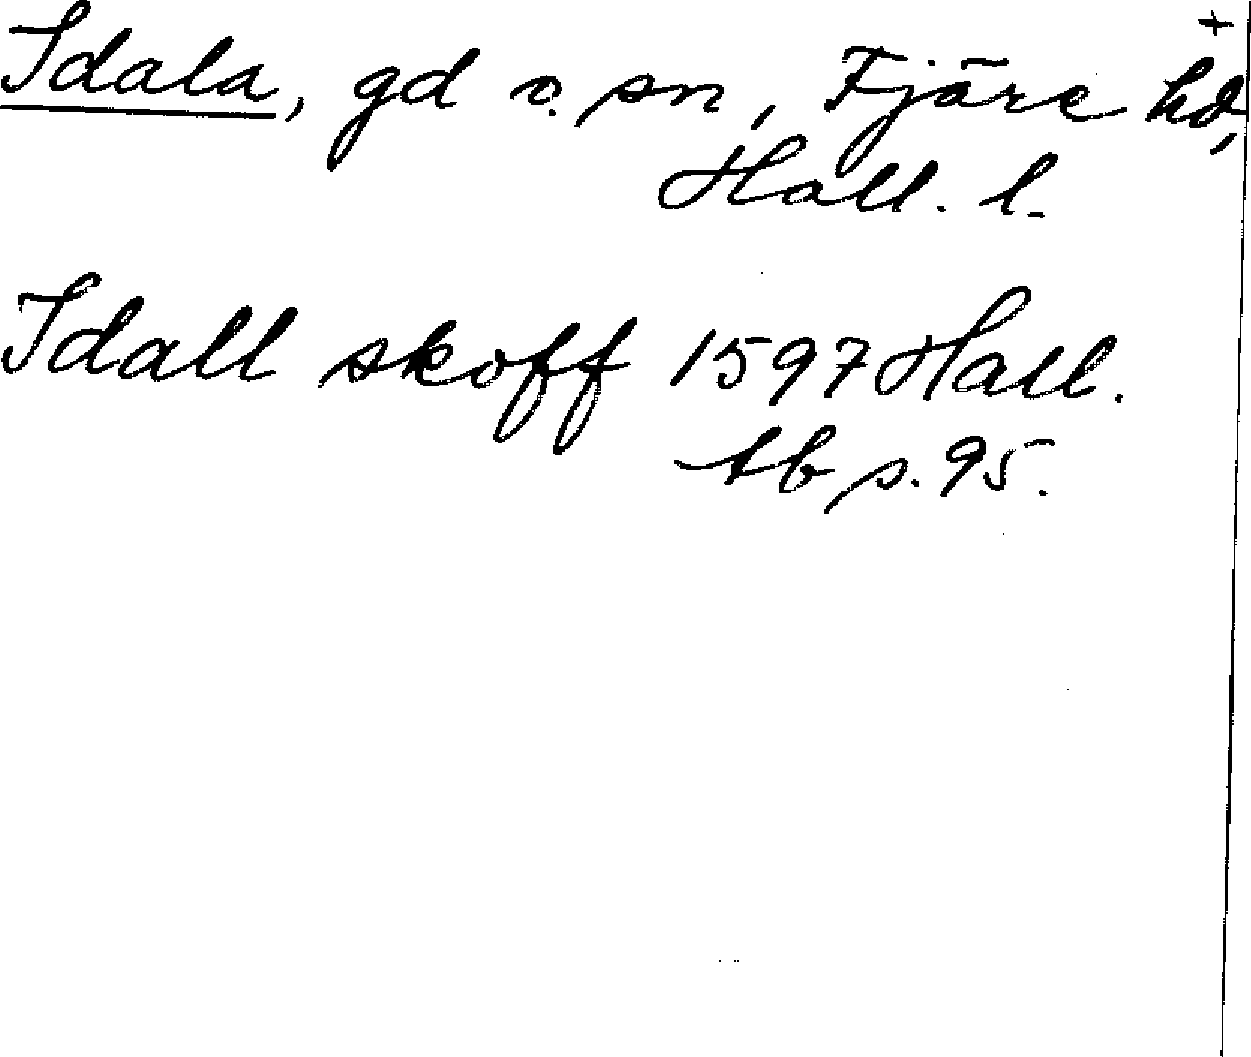 +
Idala, gd o. sn, Fjäre hd,
Hall. l.
Idall skoff 1597 Hall.
tb s. 95.